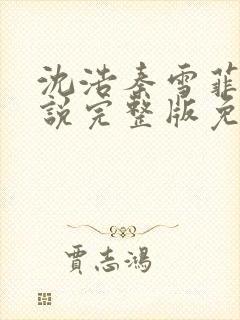 沈浩秦雪菲
說完整版免
賈志鴻